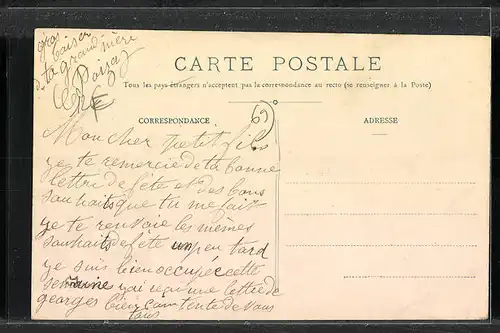 gros
baiser
de ta grand mère
CARTE POSTALE
Tous les pays étrangers n'acceptent pas la correspondance au recto (se renseigner à la Poste)
CORRESPONDANCE
ADRESSE
69
Mon cher petit fils
je te remercie de ta bonne
lettre de fête et des bons
souhaits que tu me fait
je te renvoie les mêmes
souhaits de fête un peu tard
je suis bien occupée cette
semaine j'ai reçu une lettre de
georges bien contente de vous
tous